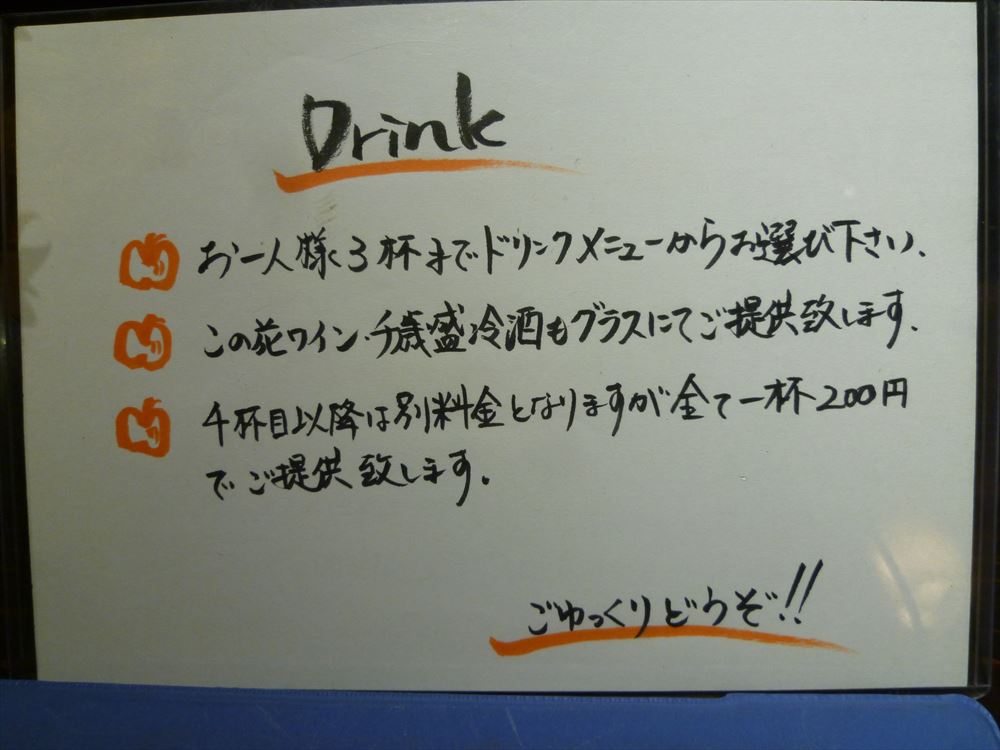 Drink
お一人様3杯までドリンクメニューからお選び下さい、
この花ワイン・千歳盛冷酒もグラスにてご提供致します。
4杯目以降は別料金となりますが全て一杯200円
でご提供致します。
ごゆっくりどうぞ!!